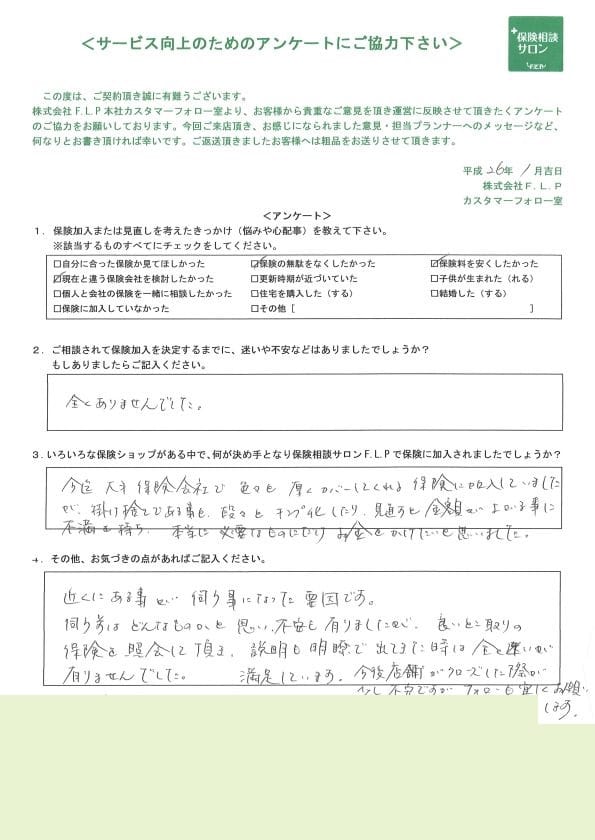 ＜サービス向上のためのアンケートにご協力下さい＞
+保険相談
サロン
この度は、ご契約頂き誠に有難うございます。
株式会社Ｆ.Ｌ.Ｐ本社カスタマーフォロー室より、お客様から貴重なご意見を頂き運営に反映させて頂きたくアンケート
のご協力をお願いしております。今回ご来店頂き、お感じになられました意見・担当プランナーへのメッセージなど、
何なりとお書き頂ければ幸いです。ご返送頂きましたお客様へは粗品をお送りさせて頂きます。
平成 26年 1月吉日
株式会社Ｆ.Ｌ.Ｐ
カスタマーフォロー室
＜アンケート＞
１．保険加入または見直しを考えたきっかけ（悩みや心配事）を教えて下さい。
※該当するものすべてにチェックをしてください。
□自分に合った保険か見てほしかった ☑保険の無駄をなくしたかった ☑保険料を安くしたかった
☑現在と違う保険会社を検討したかった □更新時期が近づいていた □子供が生まれた（れる）
□個人と会社の保険を一緒に相談したかった □住宅を購入した（する） □結婚した（する）
□保険に加入していなかった □その他［ ］
２．ご相談されて保険加入を決定するまでに、迷いや不安などはありましたでしょうか？
もしありましたらご記入ください。
全くありませんでした。
３.いろいろな保険ショップがある中で、何が決め手となり保険相談サロンF.L.Pで保険に加入されましたでしょうか？
今迄 大手保険会社で 色々と 厚くカバーしてくれる 保険に加入していました
が、掛け捨てである事も、段々と 行し、見直すと 金額が 上がる事に
不満を持ち、本当に必要なものにより お金をかけたいと思いました。
4．その他、お気づきの点があればご記入ください。
近くにある事が 伺う事になった 要因です。
伺う前は どんなものかと 思い、不安も 有りましたが、良いとこ取りの
保険を 照会して 頂き、説明も 明瞭で 出てきた時は 全く迷いが
有りませんでした。 満足しています。今後店舗がクローズした際が
少し不安ですが フォローも宜しくお願い
します。